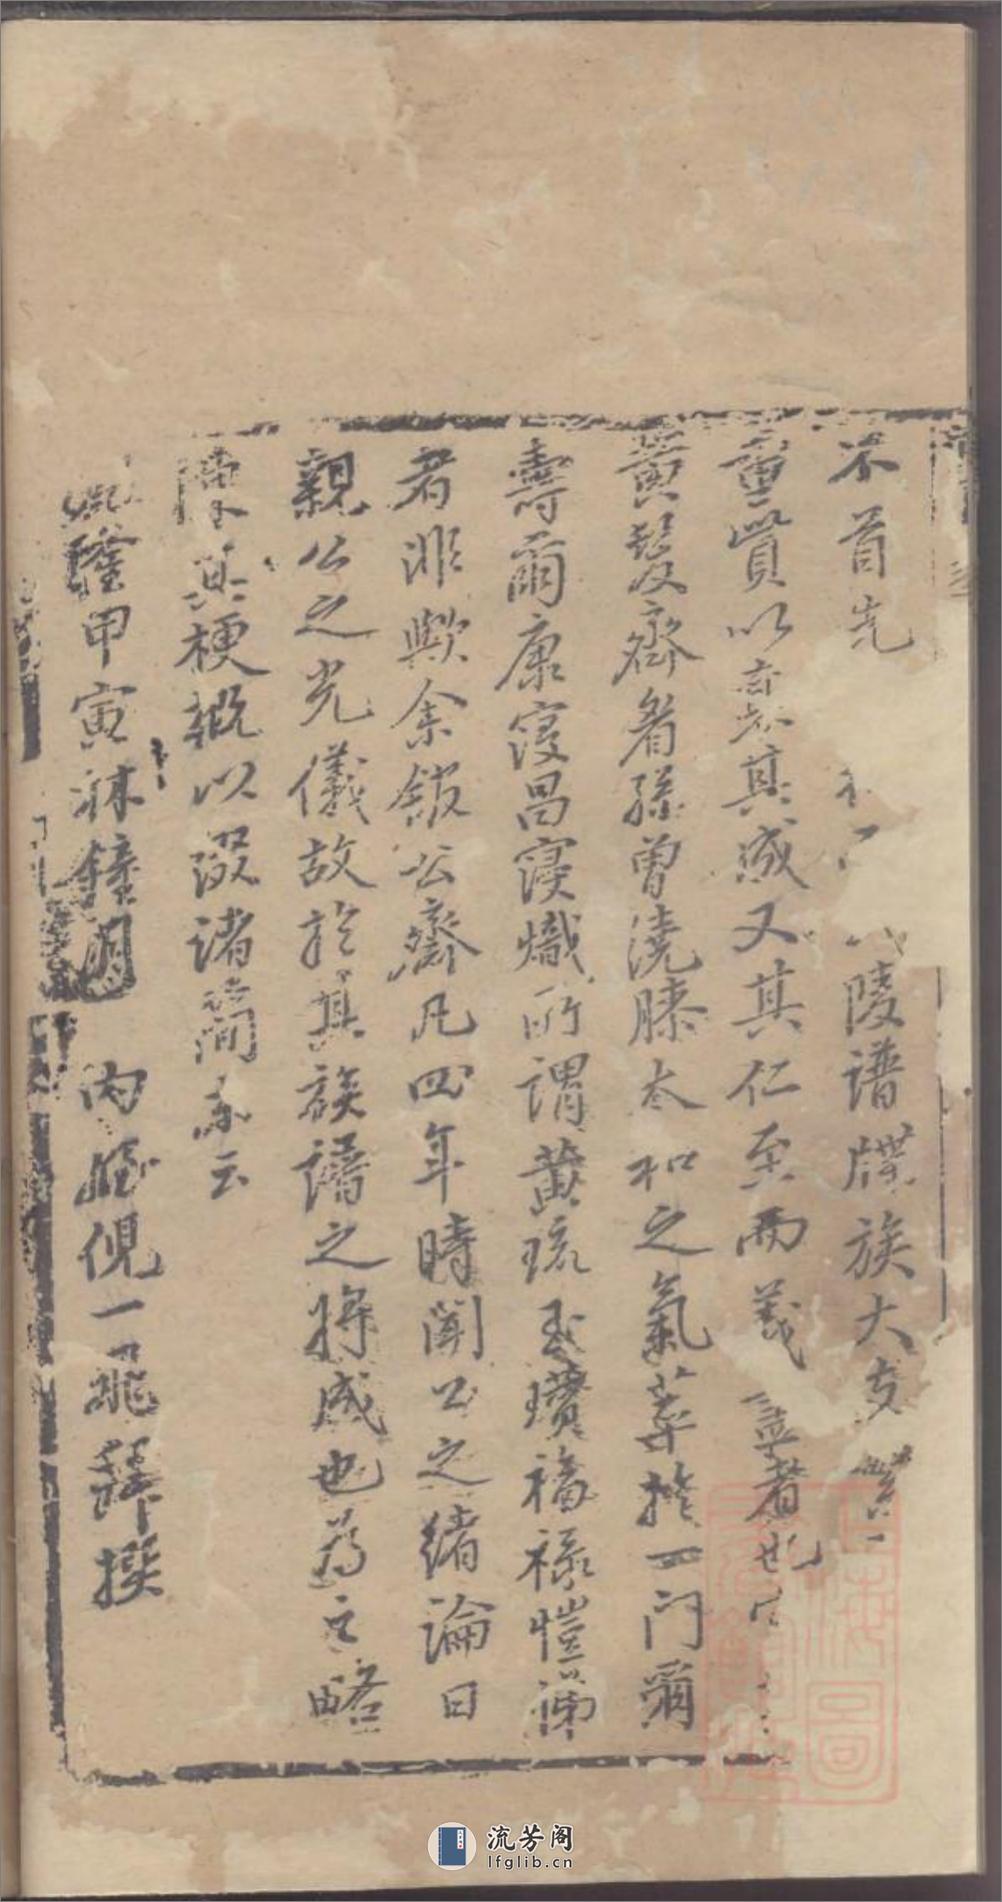 不首先陵譜牒族大支繁
重貲以其成又其仁至而義盡者也
黃髮齊眉孫曾澆膝太和之氣萃於一門爾
壽爾康寖昌寖熾所謂黃琉玉瓚福祿愷悌
者非歟余館公齋凡四年時聞公之緒論日
親公之光儀故於其族譜之將成也為之略
陳其梗概以綴諸簡末云
雍正甲寅林鐘月 內姪倪一飛拜撰
流芳阁
lfglib.cn